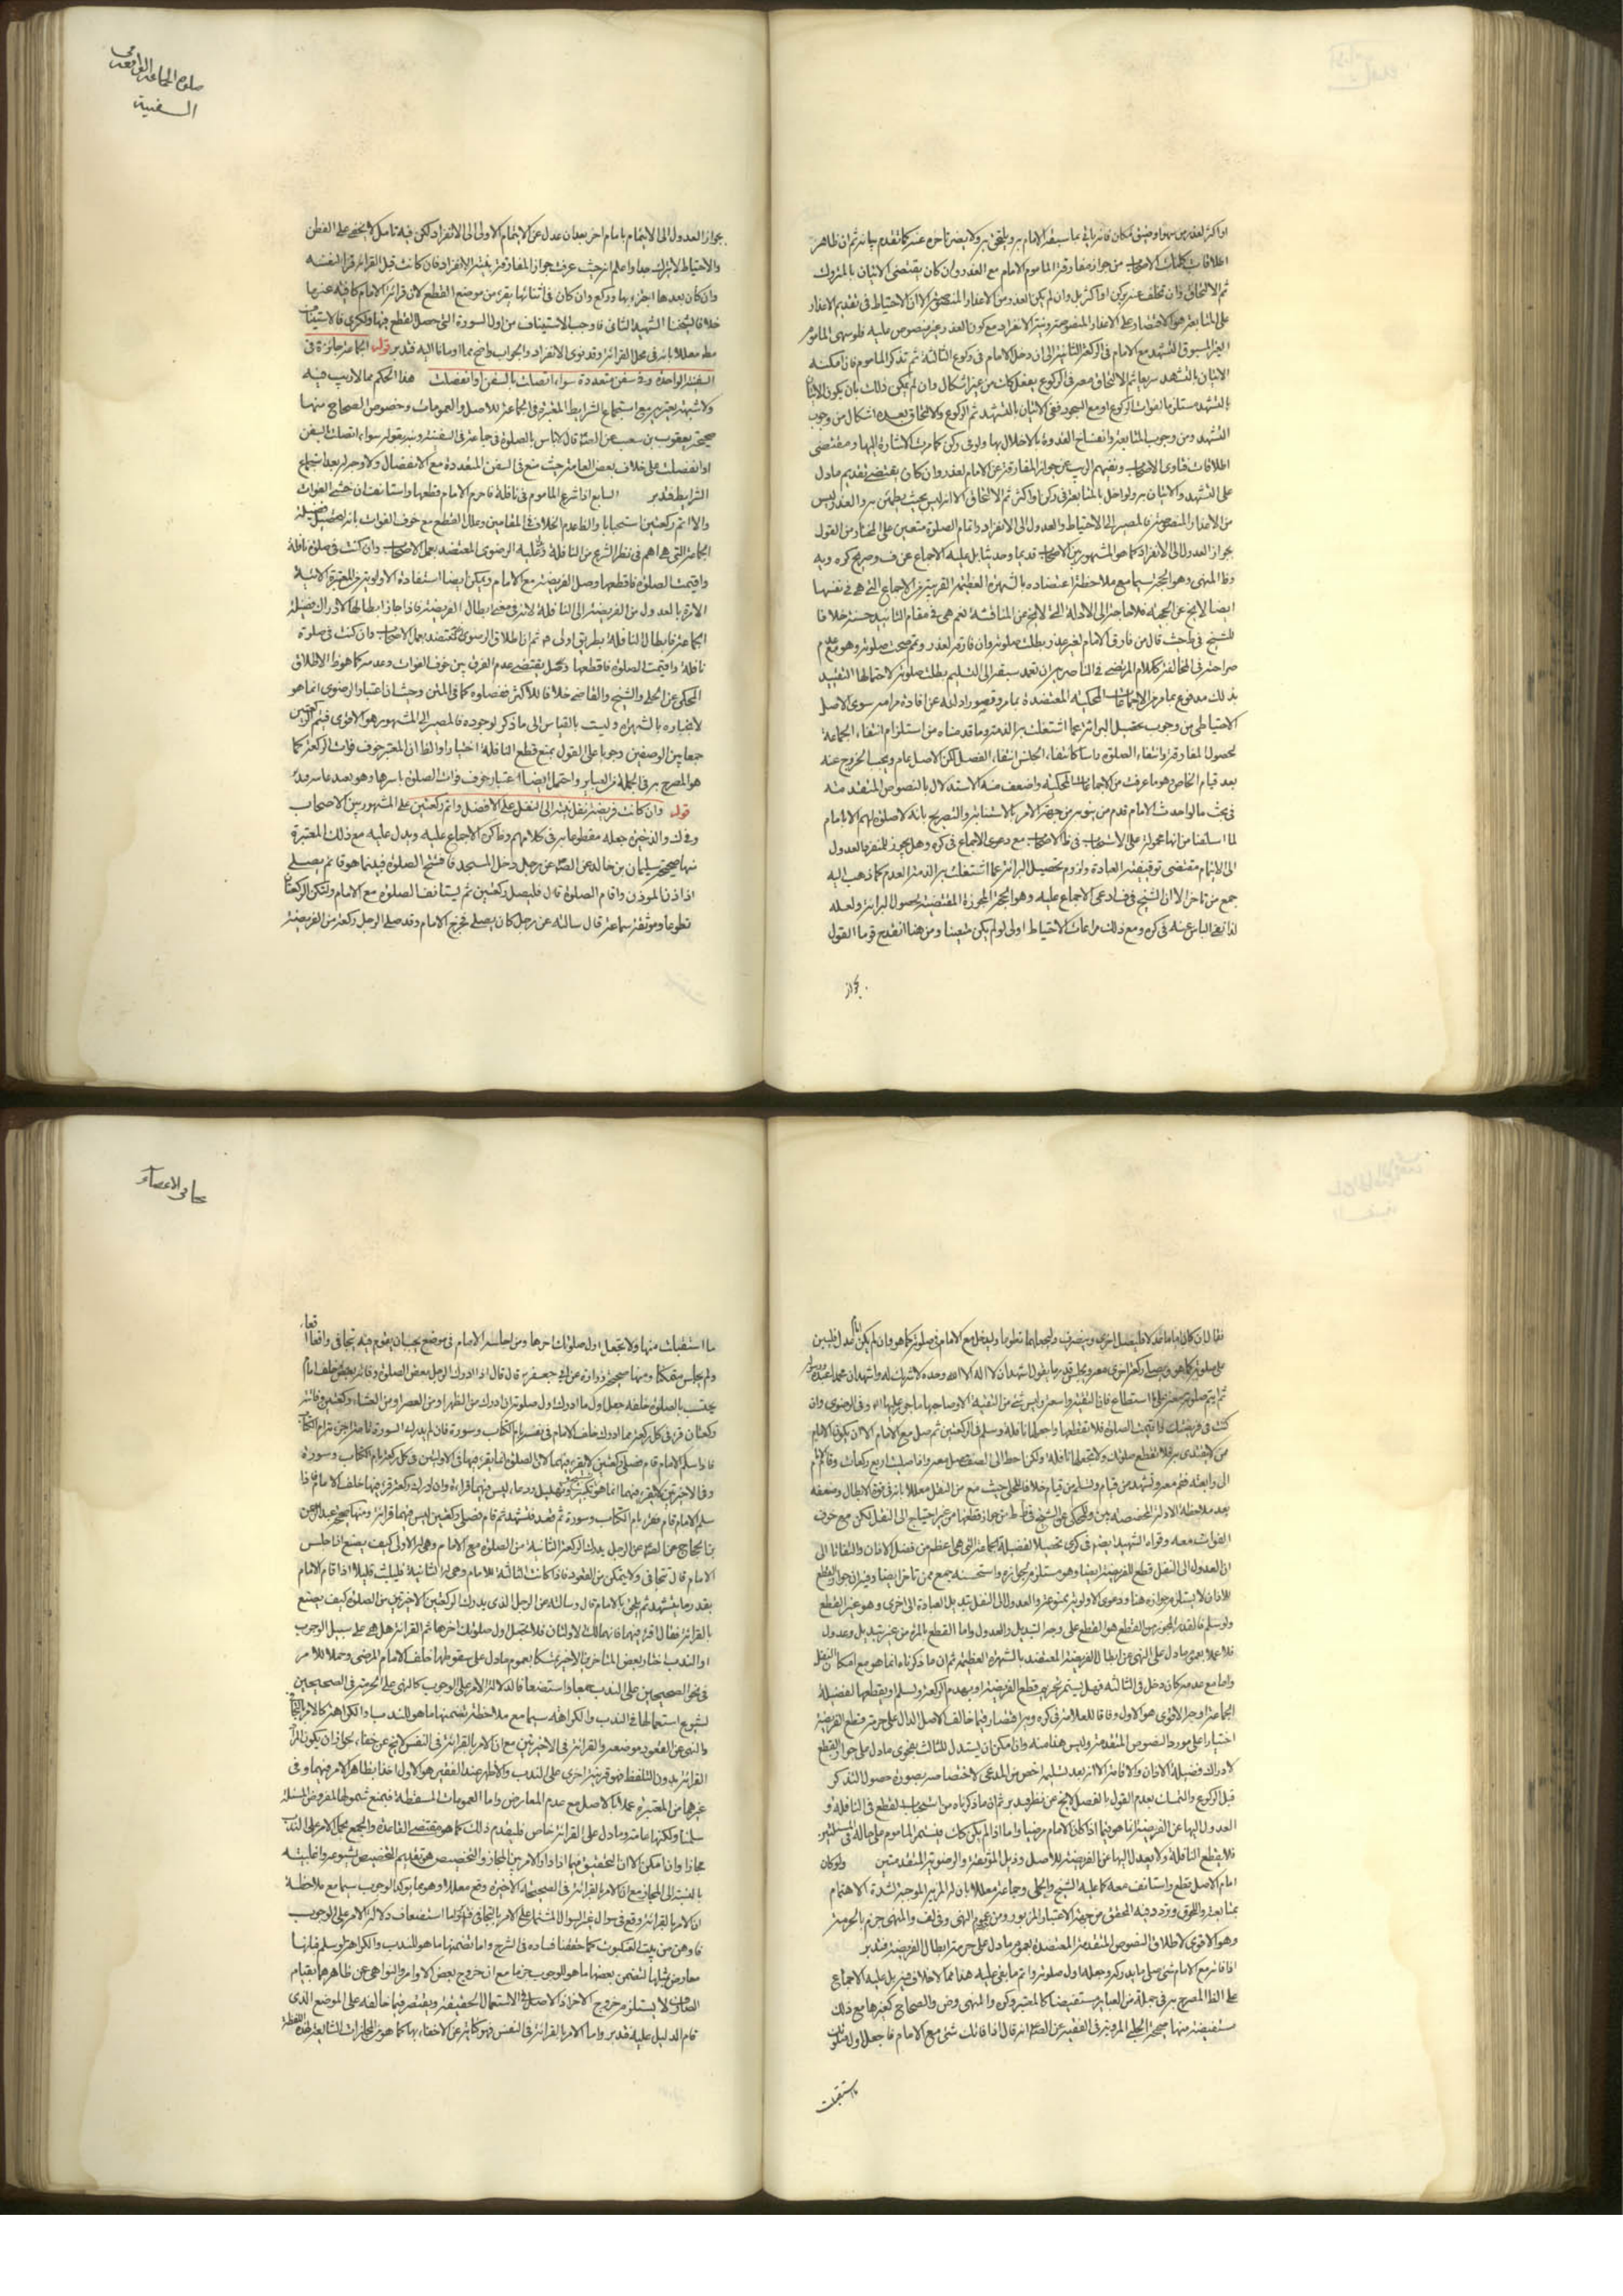 صلوة الجماعة الواقعة في
السفينة
او اكثر لعذر من سهو او ضيق مكان فانه ياتي بما سبقه الامام به ويلحق به ولا يضر تاخره عنه كما تقدم بيانه ثم ان ظاهر
اطلاقات كلمات الاصحاب من جواز مفارقة الماموم الامام مع العذر وان كان يقتضى الاتيان بالمتروك
ثم الالتحاق وان تخلف عنه بركن او اكثر بل وان لم يكن العذر من الاعذار المنصوصة الا ان الاحتياط في تقديم الاعذار
على المتابعة هو الاقتصار على الاعذار المنصوصة ونية الانفراد مع كون العذر غير منصوص عليه فلو سهى الماموم
الغير المسبوق التشهد مع الامام في الركعة الثانية الى ان دخل الامام في ركوع الثالثة ثم تذكر الماموم فان امكنه
الاتيان بالتشهد سريعا ثم الالتحاق معه في الركوع يفعل ذلك من غير اشكال وان لم يمكن ذلك بان يكون الاتيان
بالتشهد مستلزما لفوات الركوع او مع السجود ففي الاتيان بالتشهد ثم الركوع والالتحاق بعده اشكال من وجوب
التشهد ومن وجوب المتابعة وانفساخ القدوة بالاخلال بها ولو في ركن كما مرت الاشارة اليها ومقتضى
اطلاقات فتاوى الاصحاب ونفيهم الريب عن جواز المفارقة عن الامام لعذر وان كان يقتضي تقديم ما دل
على التشهد والاتيان به ولو اخل بالمتابعة في ركن او اكثر ثم الالتحاق الا انه ليس بحيث يطمئن به والعذر ليس
من الاعذار المنصوصة فالمصير الى الاحتياط والعدول الى الانفراد واتمام الصلوة متعين على المختار من القول
بجواز العدول الى الانفراد كما هو المشهور بين الاصحاب قديما وحديثا بل عليه الاجماع عن ف وصريح كره ويه
وظ المنتهى وهو الحجة سيما مع ملاحظة اعتضاده بالشهرة العظيمة القريبة من الاجماع التي هي في نفسها
ايضا لا يخ عن الحجية فلا حاجة الى الادلة التي لا يخ عن المناقشة نعم هي في مقام التائيد حسنة خلافا
للشيخ في ط حيث قال من فارق الامام لغير عذر بطلت صلوته وان فارقه لعذر وتمم صحت صلوته وهو مع عدم
صراحته في المخالفة ككلام المرتضى في الناصرية ان تعمد سبقه الى التسليم بطلت صلوته لاحتمالها التقييد
بذلك مدفوع بما مر من الاجماعات المحكية المعتضدة بما مر وقصور ادلته عن افادة مرامه سوى الاصل
الاحتياطى من وجوب تحصيل البرائة عما اشتغلت به الذمة وما قدمناه من استلزام انتفاء الجماعة
لحصول المفارقة وانتفاء الصلوة راسا كانتفاء الجنس انتفاء الفصل لكن الاصل عام ويجب الخروج عنه
بعد قيام الخاص وهو ما عرفت من الاجماعات المحكية واضعف منه الاستدلال بالنصوص المتقدمة
في بحث ما لو احدث الامام قدم من ينوبه من جهة الامر بالاستنابة والتصريح بانه لا صلوة لهم الا بامام
لما اسلفنا من انها محمولة على الاستحباب في ظ الاصحاب مع دعوى الاجماع في كره وهل يجوز للمنفرد العدول
الى الايتمام مقتضى توقيفية العبادة ولزوم تحصيل البرائة عما اشتغلت به الذمة العدم كما ذهب اليه
جمع من تاخر الا ان الشيخ في ف ادعى الاجماع عليه وهو الحجة المجوزة المقتضية لحصول البرائة ولعله
لذا نفى الباس عنه في كره ومع ذلك مراعات الاحتياط اولى لو لم يكن متعينا ومن هنا انقدح قوة ما القول
بجواز
بجواز العدول الى الايتمام بامام اخر بعد ان عدل عن الايتمام الاولى الى الانفراد لكن فيه تامل لا يخفى على الفطن
والاحتياط لا يترك جدا واعلم انه حيث عرفت جواز المفارقة بنية الانفراد فان كانت قبل القرائة قرا لنفسه
وان كان بعدها اجتزء بها وركع وان كان في اثنائها يقرء من موضع القطع لان قرائة الامام كافية عنه بها
خلافا لشيخنا الشهيد الثاني فاوجب الاستيناف من اول السورة التي حصل القطع فيها ولكرى فالاستيناف
مط معللا بانه في محل القرائة وقد نوى الانفراد والجواب واضح مما اومانا اليه فتدبر قوله الجماعة جائزة في
السفينة الواحدة وفي سفن متعددة سواء اتصلت بالسفن او انفصلت هذا الحكم مما لا ريب فيه
ولا شبهة يعتريه مع استجماع الشرايط المعتبرة في الجماعة للاصل والعمومات وخصوص الصحاح منها
صحيحة يعقوب بن شعيب عن الصه قال لا باس بالصلوة في جماعة في السفينة ونبه بقوله سواء اتصلت السفن
او انفصلت على خلاف بعض العامة حيث منع في السفن المتعددة مع الانفصال ولا وجه له بعد استجماع
الشرايط فتدبر السابع اذا شرع الماموم في نافلة فاحرم الامام قطعها واستانف ان خشي الفوات
والا اتم ركعتين استحبابا والظ عدم الخلاف في المقامين وعلل القطع مع خوف الفوات بانه لتحصيل فضيلة
الجماعة التي هي اهم في نظر الشرع من النافلة وعليه الرضوى المعتضد بعمل الاصحاب وان كنت في صلوة نافلة
واقيمت الصلوة فاقطعها وصل الفريضة مع الامام ويمكن ايضا استفادة الاولوية من المعتبرة الاتية
الامرة بالعدول من الفريضة الى النافلة لانه في معنى ابطال الفريضة فاذا جاز ابطالها لادراك فضيلة
الجماعة فابطال النافلة بطريق اولى ثم ان اطلاق الرضوى المعتضد بعمل الاصحاب وان كنت في صلوة
نافلة واقيمت الصلوة فاقطعها وصل يقتضي عدم الفرق بين خوف الفوات وعدمه كما هو ظ الاطلاق
المحكي عن الحلي والشيخ والقاضي خلافا للاكثر ففصلوه كما في المتن وحيث ان اعتبار الرضوى انما هو
لانجباره بالشهرة وليست بالقياس الى ما ذكر لوجوده فالمصير الى المشهور هو الاقوى فيتم الركعتين
جمعا بين الوصفين وجوبا على القول بمنع قطع النافلة اختيارا والظ ان المعتبر خوف فوات الركعة كما
هو المصرح به في الجملة من العباير واحتمل ايضا اعتبار خوف فوات الصلوة باسرها وهو بعيد عما سردنا
قوله وان كانت فريضة نقل نيته الى النفل على الافضل واتم ركعتين على المشهور بين الاصحاب
وفي ك والذخيرة جعله مقطوعا به في كلامهم وعن كره الاجماع عليه ويدل عليه مع ذلك المعتبرة
منها صحيحة سليمان بن خالد عن الصه عن رجل دخل المسجد فافتتح الصلوة فبينما هو قائم يصلي
اذا ذن الموذن واقام الصلوة قال فليصل ركعتين ثم ليستانف الصلوة مع الامام ولتكن الركعتان
تطوعا وموثقة سماعة قال سالته عن رجل كان يصلي فخرج الامام وقد صلى الرجل ركعة من الفريضة
تجافي الاعضاء
فقال ان كان اماما عدلا فليصل اخرى وينصرف وليجعلهما تطوعا وليدخل مع الامام في صلوته كما هو وان لم يكن امام عدل فليبن
على صلوته كما هو ويصلي ركعة اخرى معه ويجلس قدر ما يقول اشهد ان لا اله الا الله وحده لا شريك له واشهد ان محمدا عبده ورسوله
ثم ليتم صلوته معه على ما استطاع فان التقية واسعة وليس شئ من التقية الا وصاحبها ماجور عليها الله وفي الرضوى وان
كنت في فريضتك واقيمت الصلوة فلا تقطعها واجعلها نافلة وسلم في الركعتين ثم صل مع الامام الا ان يكون الامام
من لا يقتدى به فلا تقطع صلوتك ولا تجعلها نافلة ولكن اخط الى الصف وصل معه واذا صليت اربع ركعات وقام الامام
الى رابعته فقم معه وتشهد من قيام وتسلم من قيام خلافا للحلي حيث منع من النقل معللا بانه في قوة الابطال وضعفه
بعد ملاحظة الادلة المخصصة بين والمحكي عن الشيخ في ط من جواز قطعها من غير احتياج الى النفل لكن مع خوف
الفوات معه وقواه الشهيد ايضا في كرى تحصيلا لفضيلة الجماعة التي هي اعظم من فضل الاذان والتفاتا الى
ان العدول الى النفل قطع للفريضة ايضا وهو مستلزم لجوازه واستحسنه جمع ممن تاخر ايضا وفيه ان جواز القطع
للاذان لا يستلزم جوازه هنا ودعوى الاولوية ممنوعة والعدول الى النفل تبديل العبادة الى اخرى وهو غير القطع
ولو سلم فالقدر المجوز من القطع هو القطع على وجه التبديل والعدول واما القطع بالمرة من غير تبديل وعدول
فلا عملا بعموم ما دل على النهي عن ابطال الفريضة المعتضد بالشهرة العظيمة ثم ان ما ذكرناه انما هو مع امكان النفل
واما مع عدمه كان دخل في الثالثة فهل يستمر تحريم قطع الفريضة او يهدم الركعة ويسلم او يقطعها لفضيلة
الجماعة اوجه الاقوى هو الاول وفاقا للعلامة في كره وير اقتصارا فيما خالف الاصل الدال على حرمة قطع الفريضة
اختيارا على مورد النصوص المتقدمة وليس هنا منه وان امكن ان يستدل للثالث بفحوى ما دل على جواز القطع
لادراك فضيلة الاذان والاقامة الا انه بعد تسليمه اخص من المدعى لاختصاصه بصورة حصول التذكر
قبل الركوع والتمسك بعدم القول بالفصل لا يخ عن نظر فتدبر ثم ان ما ذكرناه من استحباب القطع في النافلة و
العدول اليها عن الفريضة انما هو فيما اذا كان الامام مرضيا واما اذا لم يكن كك فيستمر الماموم على حاله في المسئلتين
فلا يقطع النافلة ولا يعدل اليها عن الفريضة للاصل وذيل الموثقة والرضوية المتقدمتين ولو كان
امام الاصل قطع واستانف معه كما عليه الشيخ والحلي وجماعة معللا بان له المزية الموجبة لشدة الاهتمام
بمتابعته واللحوق وتردد فيه المحقق من جهة الاعتبار المزبور ومن عموم النهي وفي لف والمنتهى جزم بالحرمة
وهو الاقوى لاطلاق النصوص المتقدمة المعتضدة بعموم ما دل على حرمة ابطال الفريضة فتدبر
اذا فاته مع الامام شئ صلى ما يدركه وجعله اول صلوته واتم ما بقي عليه هذا مما لا خلاف فيه بل عليه الاجماع
على الظ المصرح به في جملة من العباير مستفيضا كالمعتبر وكره والمنتهى وض والصحاح كغيرها مع ذلك
مستفيضة منها صحيحة الحلبي المروية في الفقيه عن الصه انه قال اذا فاتك شئ مع الامام فاجعل اول صلوتك
ما استقبلت
ما استقبلت منها ولا تجعل اول صلوتك اخرها ومن اجلسه الامام في موضع يجب ان يقوم فيه تجافى واقعا اقعاء
ولم يجلس متمكنا ومنها صحيحة زرارة عن ابي جعفر ع قال قال اذا ادرك الرجل بعض الصلوة وفاته بعض خلف امام
يحتسب بالصلوة خلفه جعل اول ما ادرك اول صلوته ان ادرك من الظهر او من العصر او من العشاء ركعتين وفاتته
ركعتان قرء في كل ركعة مما ادرك خلف الامام في نفسه بام الكتاب وسورة فان لم يدرك السورة تامة اجزئه ام الكتاب
فاذا سلم الامام قام فصلى ركعتين لا يقرء فيهما لان الصلوة انما يقرء فيها في الاوليين في كل ركعة بام الكتاب وسورة
وفي الاخيرتين لا يقرء فيهما انما هو تسبيح وتكبير وتهليل ودعاء ليس فيهما قرائة وان ادرك ركعة قرء فيها خلف الامام فاذا
سلم الامام قام فقرء بام الكتاب وسورة ثم قعد فتشهد ثم قام فصلى ركعتين ليس فيهما قرائة ومنها صحيحة عبد الرحمن
بن الحجاج عن الصه عن الرجل يدرك الركعة الثانية من الصلوة مع الامام وهي له الاولى كيف يصنع اذا جلس
الامام قال يتجافى ولا يتمكن من القعود فاذا كانت الثالثة للامام وهي له الثانية فليلبث قليلا اذا قام الامام
بقدر ما يتشهد ثم يلحق بالامام قال وسالته عن الرجل الذي يدرك الركعتين الاخيرتين من الصلوة كيف يصنع
بالقرائة فقال اقرء فيهما فانهما لك الاولتان فلا تجعل اول صلوتك اخرها ثم القرائة هل هي على سبيل الوجوب
او الندب خلاف وبعض المتاخرين الاخير تمسكا بعموم ما دل على سقوطها خلف الامام المرضي وحملا للامر
في نحو الصحيحين على الندب جمعا واستضعافا لدلالة الامر على الوجوب كالنهي على الحرمة في الصحيحين
لشيوع استعمالها في الندب والكراهة سيما مع ملاحظة تضمنهما ما هو للندب او الكراهة كالامر بالتجافي
والنهي عن القعود موضعه والقرائة في الاخيرتين مع ان الامر بالقرائة في النفس لا يخ عن خفاء لجواز ان يكون المراد
القرائة بدون التلفظ فهو قرينة اخرى على الندب والاظهر عند الفقير هو الاول اخذا بظاهر الامر فيهما وفي
غيرهما من المعتبرة عملا بالاصل مع عدم المعارض واما العمومات المسقطة فيمنع شمولها لمفروض المسئلة
سلمنا ولكنها عامة وما دل على القرائة خاص فليقدم ذلك كما هو مقتضى القاعدة والجمع بحمل الامر على الندب
مجازا وان امكن الا ان التحقيق فيما اذا دار الامر بين المجاز والتخصيص هو تقديم التخصيص لشيوعه واغلبيته
بالنسبة الى المجاز مع ان الامر بالقرائة في الصحيحة الاخيرة وقع معللا وهو مما يؤكد الوجوب سيما مع ملاحظة
ان الامر بالقرائة وقع في سوال غير السوال المشتمل على الامر بالتجافي فيه واما استضعاف دلالة الامر على الوجوب
فاوهن من بيت العنكبوت كما حققنا فساده في الشرح واما تضمنها ما هو للندب والكراهة لو سلم فانها
معارض بمثلها لتضمن بعضها ما هو للوجوب جزما مع ان خروج بعض الاوامر والنواهي عن ظاهرهما بقيام
الصارف لا يستلزم خروج الاخر اذ الاصل في الاستعمال الحقيقة ويقتصر فيما خالفه على الموضع الذي
قام الدليل عليه فتدبر واما الامر بالقرائة في النفس فهو كناية عن الاخفاء بها كما هو من المجازات الشايعة لهذه اللفظة